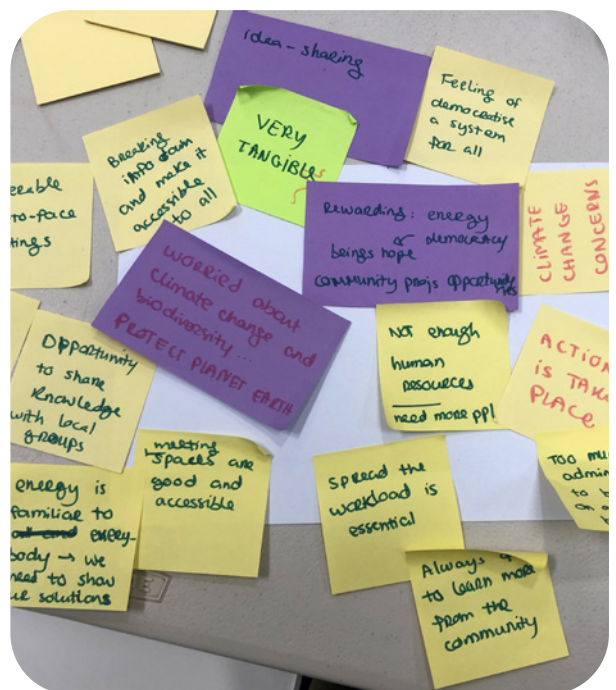 idea-sharing
Feeling of
democratise
a system
for all
VERY
TANGIBLES
Breaking
info down
and make it
accessible
to all
Rewarding: energy
& democracy
beings hope
community projs opportunities
CLIMATE
CHANGE
CONCERNS
WORRIED about
climate change and
biodiversity...
PROTECT PLANET EARTH
Not enough
human
resources
need more ppl
ACTION
is
PLACE
Opportunity
to share
knowledge
with local
groups
meeting
spaces are
good and
accessible
spread the
workload is
essential
Too
admin
to
on
energy is
familiar to
every-
body → we
to show
solutions
Always
to learn more
from the
community